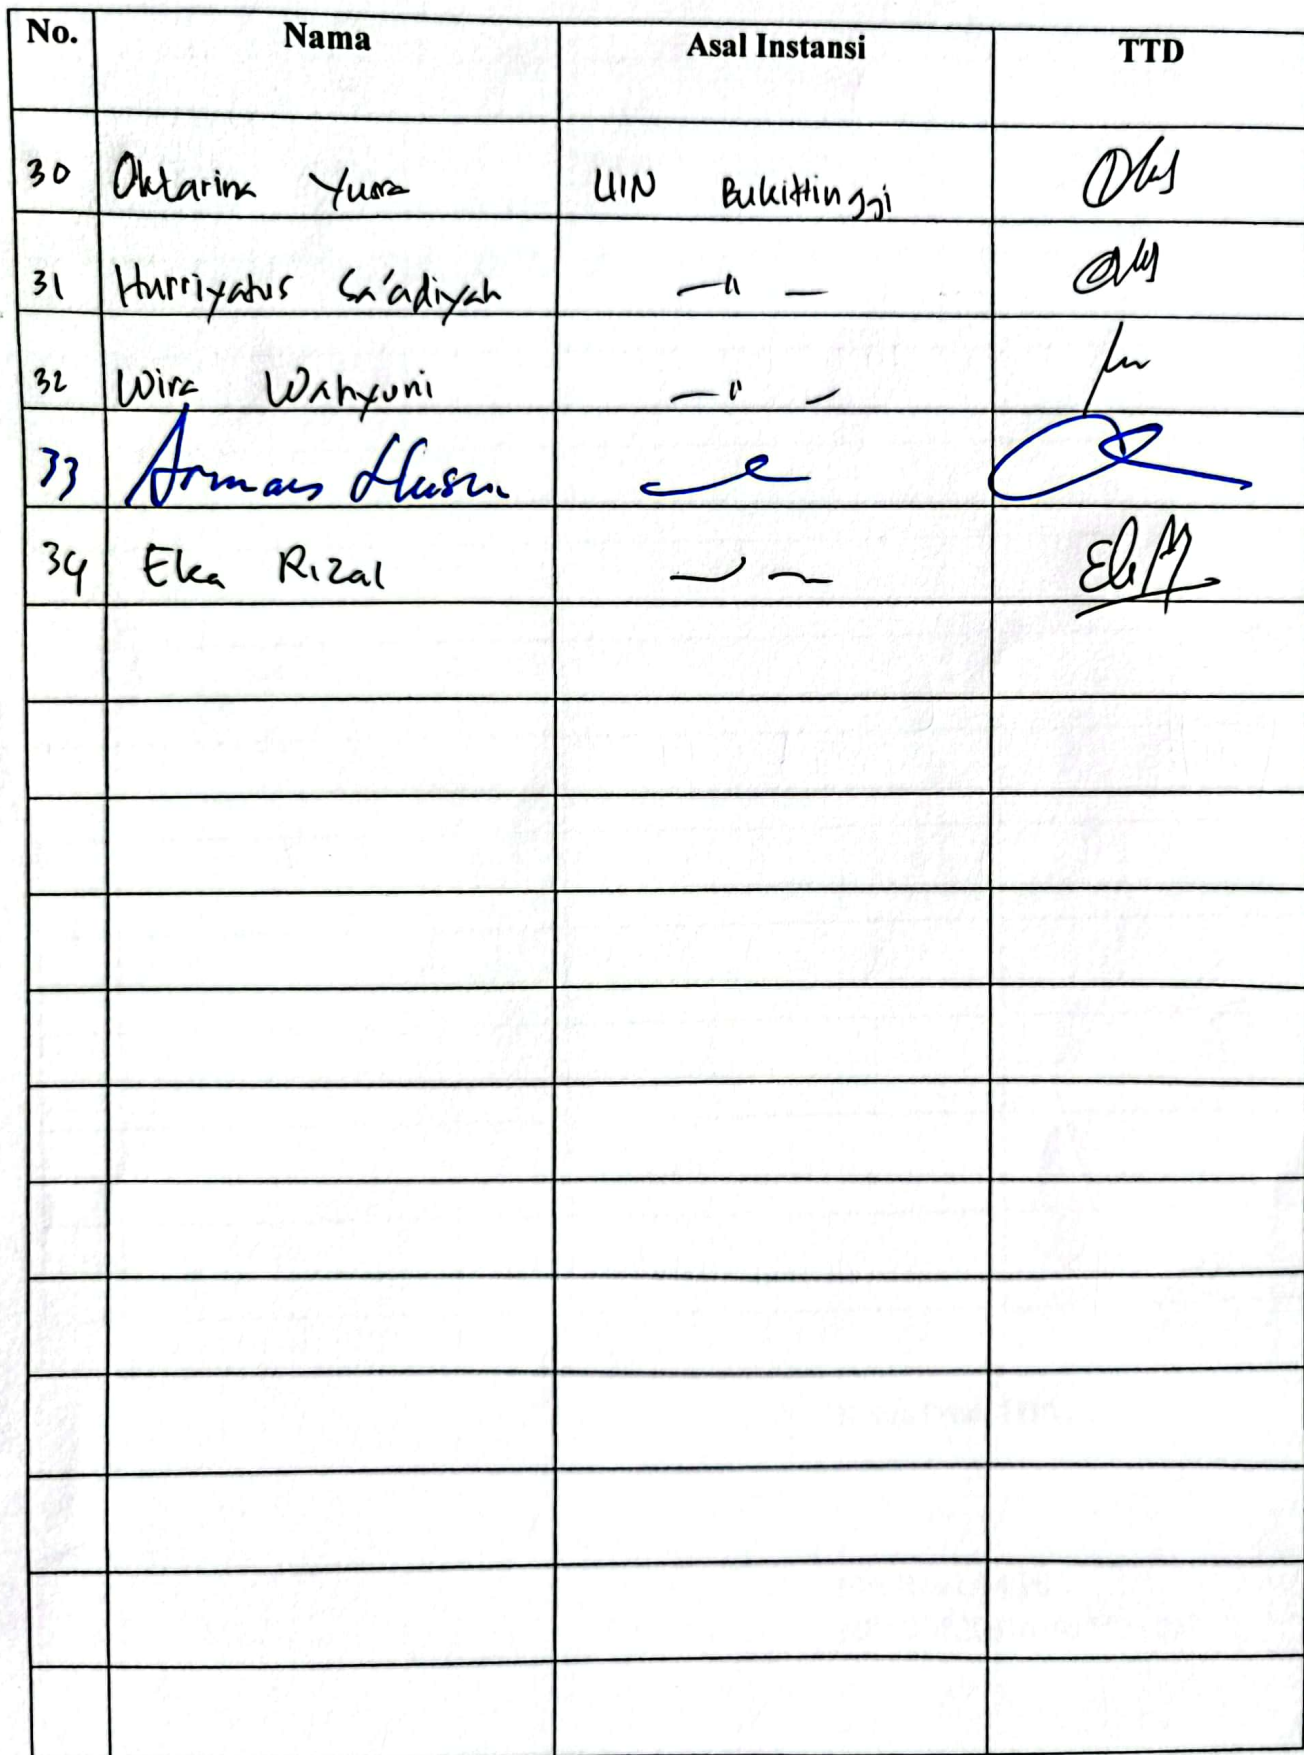 No. Nama Asal Instansi TTD
30 Oktarina Yusra UIN Bukittinggi
31 Hurriyatus Sa'adiyah —"—
32 Wira Wahyuni —"—
33 Arman Husni
34 Eka Rizal